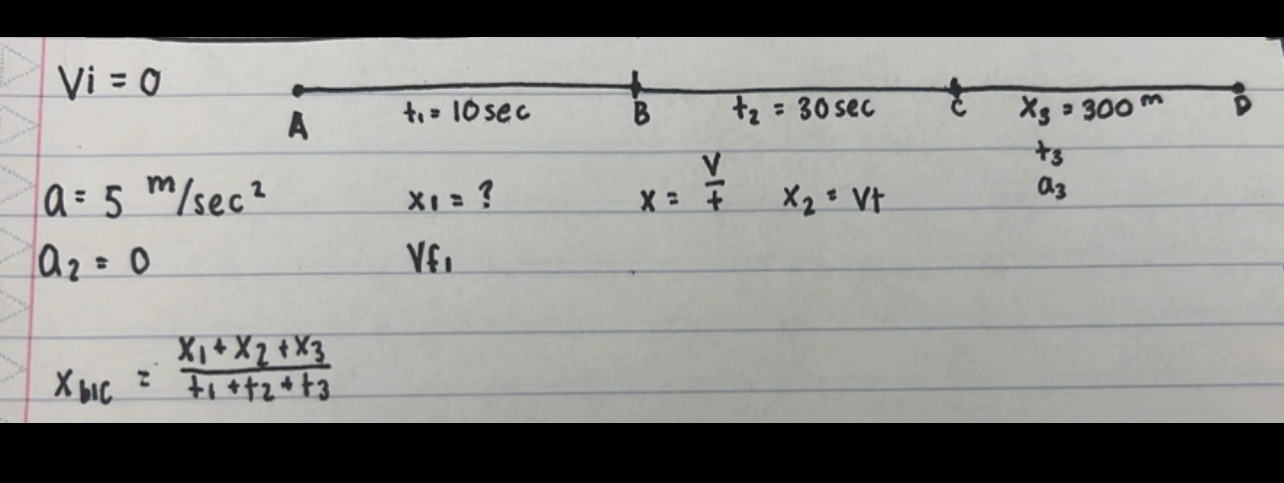 Vi = 0
A t₁ = 10 sec B t₂ = 30 sec C x₃ = 300 m D
t₃
a = 5 m/sec² x₁ = ? x = v/t x₂ = vt a₃
a₂ = 0 Vf₁
x bic = x₁ + x₂ + x₃ / t₁ + t₂ + t₃